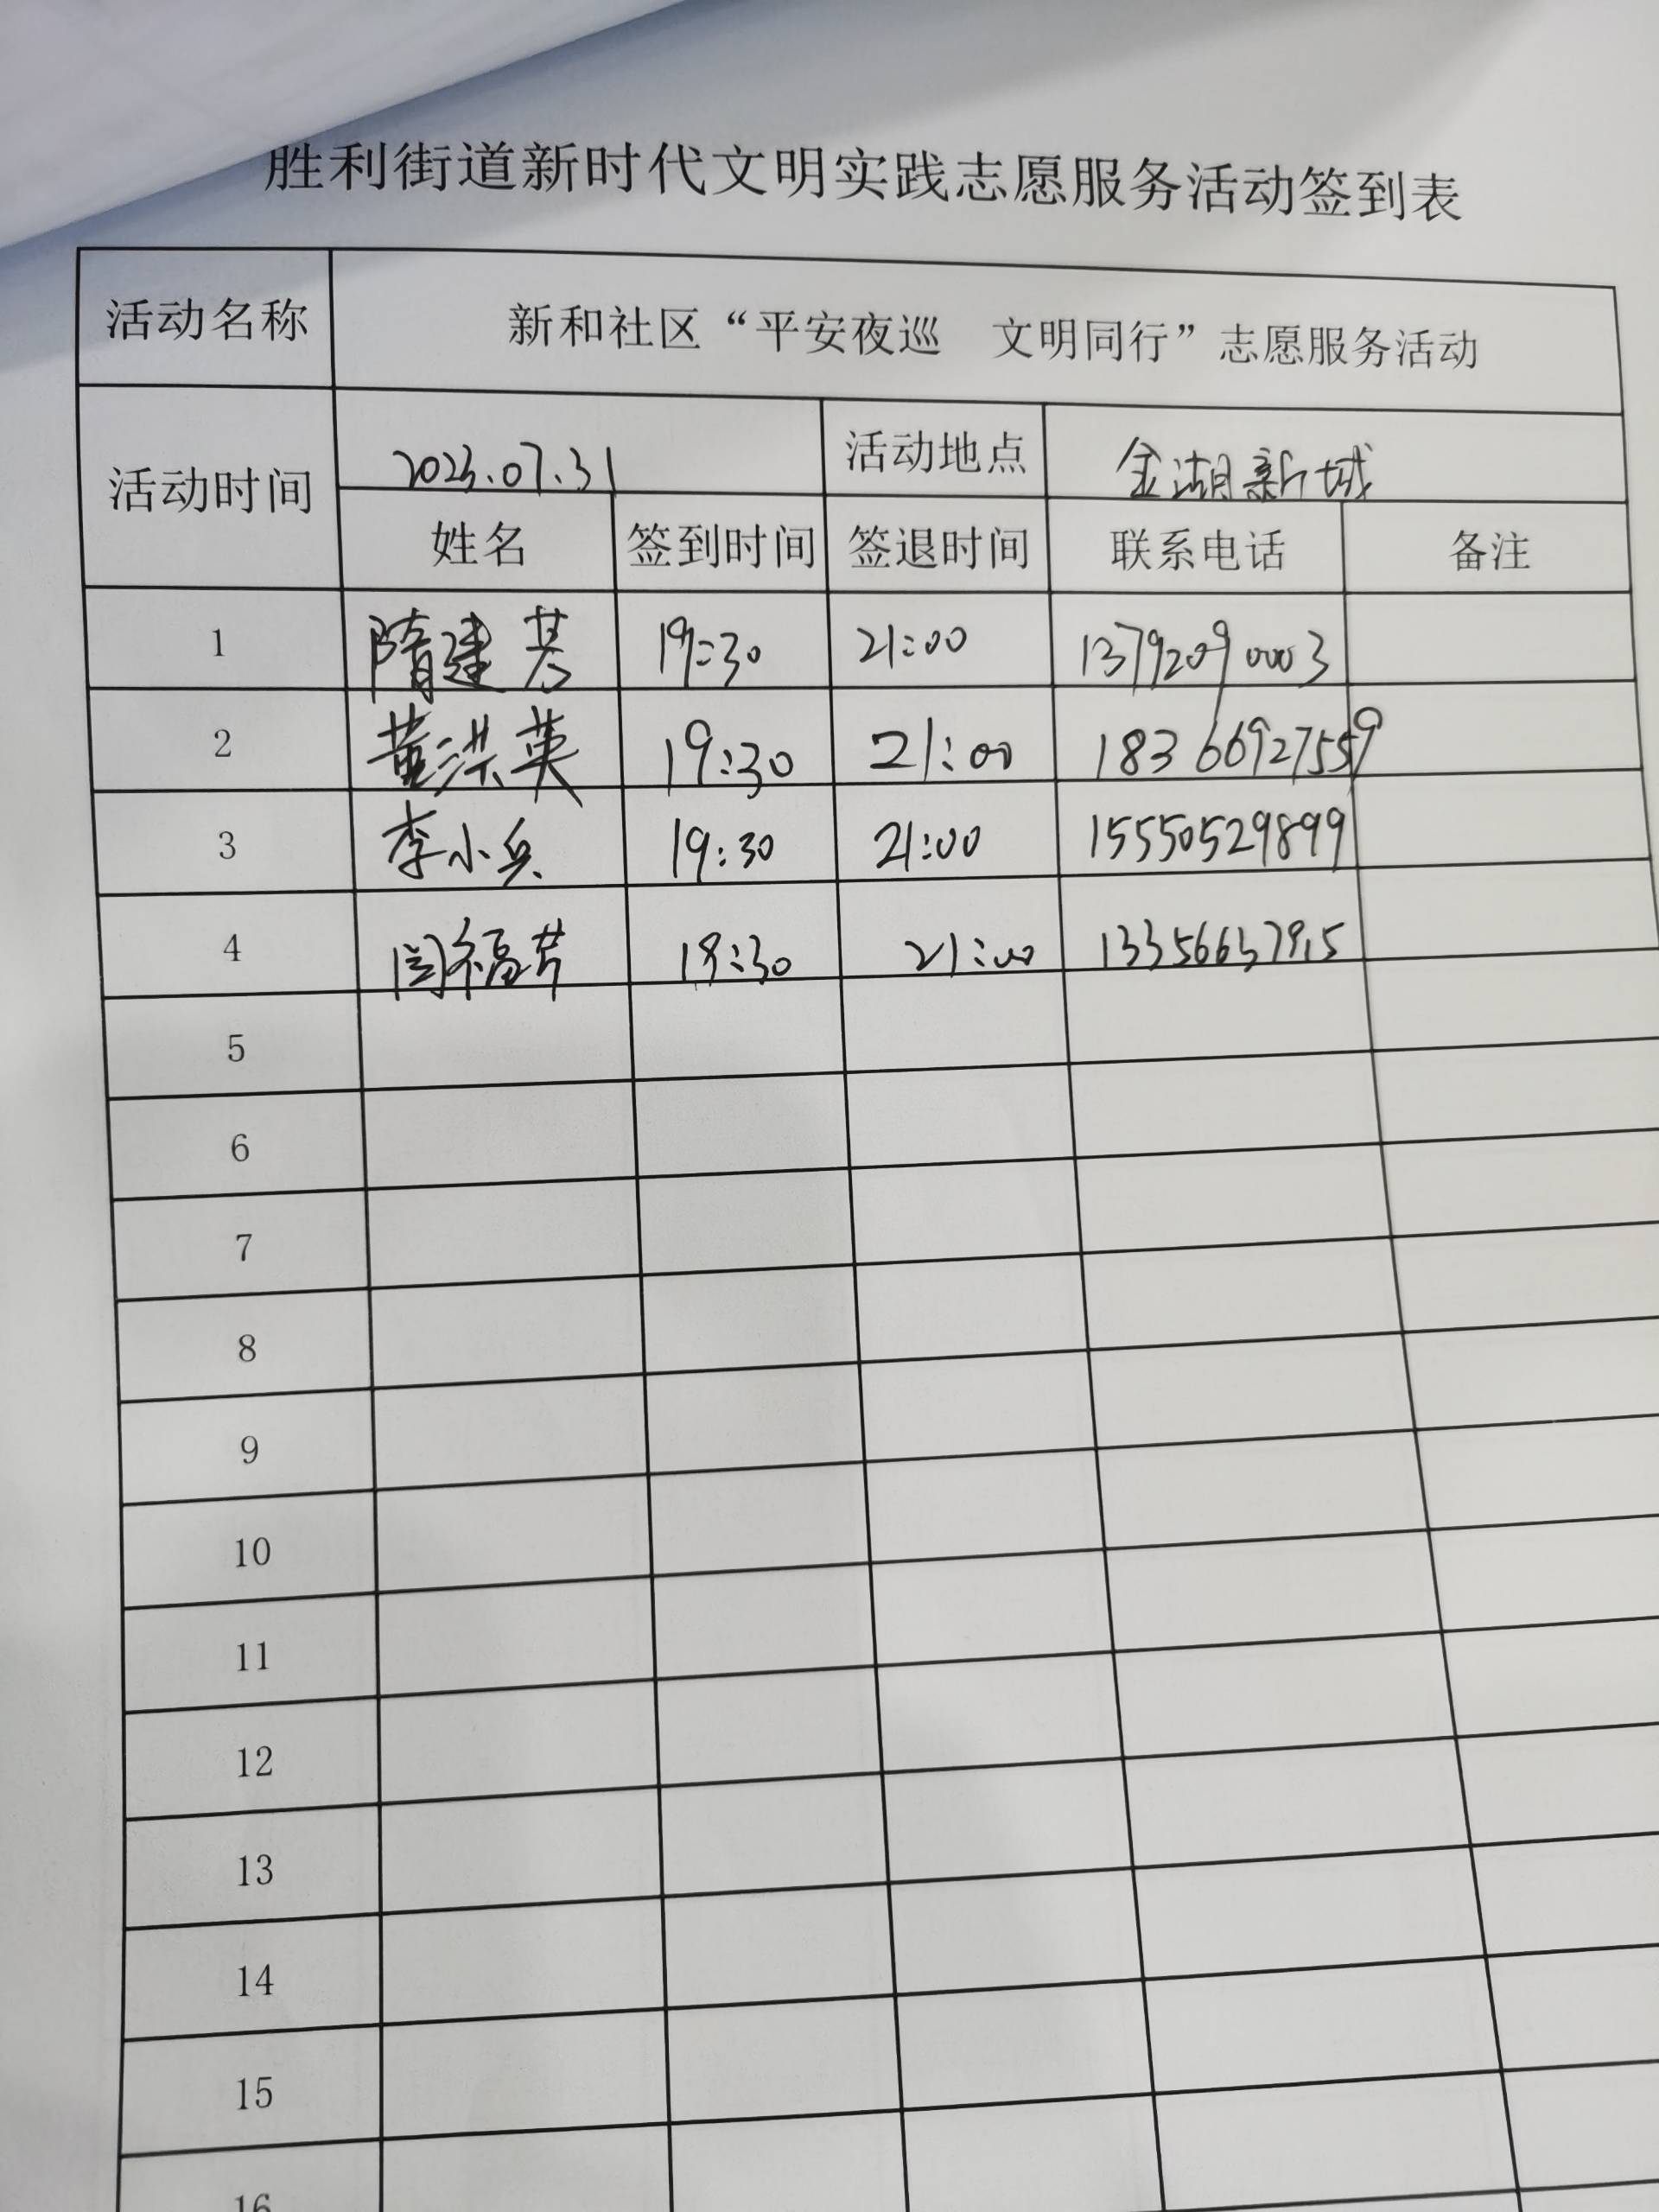 胜利街道新时代文明实践志愿服务活动签到表
活动名称 新和社区“平安夜巡 文明同行”志愿服务活动
活动时间 2023.07.31 活动地点 金湖新城
姓名 签到时间 签退时间 联系电话 备注
1 隋建 19:30 21:00 13792090003
2 董洪英 19:30 21:00 18366927559
3 李小兵 19:30 21:00 15550529899
4 闫福芹 19:30 21:00 13356637915
5
6
7
8
9
10
11
12
13
14
15
16